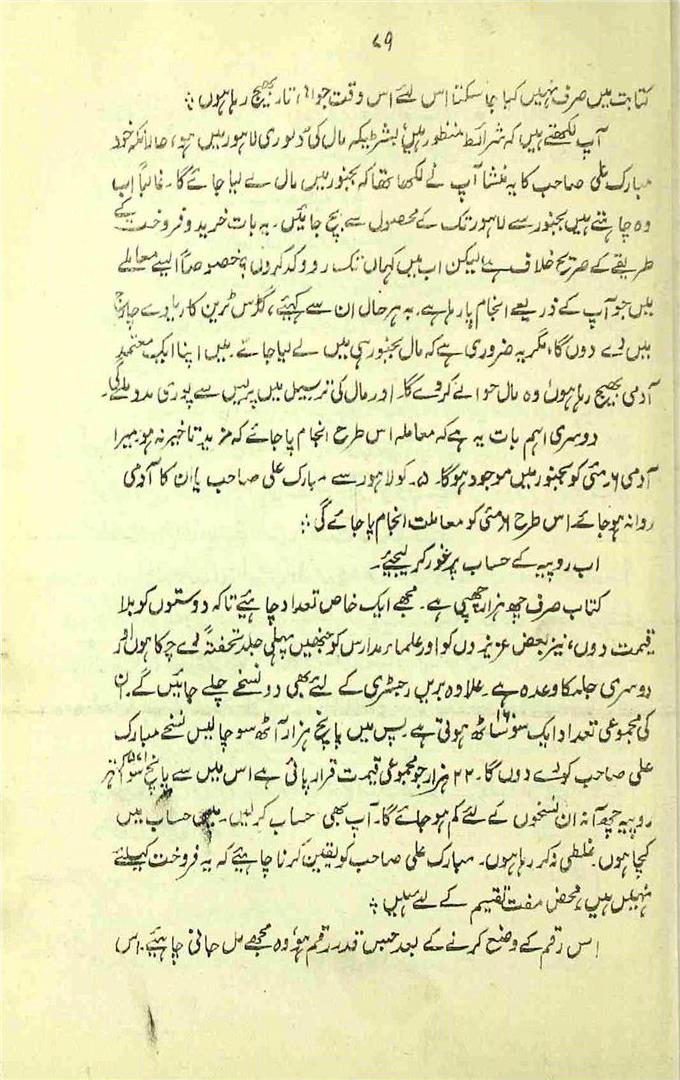 ۷۹
کتابت میں صرف نہیں کیا جا سکتا اس لئے اس وقت جواباً تار بھیج رہا ہوں ؛
آپ لکھتے ہیں کہ شرائط منظور ہیں بشرطیکہ مال کی ڈلیوری لاہور میں ہو، حالانکہ خود
مبارک علی صاحب کا یہ منشا آپ نے لکھا تھا کہ بجنور میں مال لے لیا جائے گا۔ غالباً اب
وہ چاہتے ہیں بجنور سے لاہور تک کے محصول سے بچ جائیں۔ یہ بات خرید و فروخت کے
طریقے کے صریح خلاف ہے لیکن اب میں کہاں تک رد و کد کروں؟ خصوصاً ایسے معاملے
میں جو آپ کے ذریعے انجام پا رہا ہے۔ بہر حال ان سے کہیئے، گڈس ٹرین کا ریلوے چارج
میں دے دوں گا، مگر یہ ضروری ہے کہ مال بجنور ہی میں لے لیا جائے۔ میں اپنا ایک معتمد
آدمی بھیج رہا ہوں وہ مال حوالے کر دے گا۔ اور مال کی ترسیل میں پریس سے پوری مدد ملے گی۔
دوسری اہم بات یہ ہے کہ معاملہ اس طرح انجام پا جائے کہ مزید تاخیر نہ ہو۔ میرا
آدمی ۶۔ مئی کو بجنور میں موجود ہوگا۔ ۵۔ کو لاہور سے مبارک علی صاحب یا ان کا آدمی
روانہ ہو جائے۔ اس طرح ۶ مئی کو معاملت انجام پا جائے گی ؛
اب روپیہ کے حساب پر غور کر لیجئے۔
کتاب صرف چھ ہزار چھپی ہے۔ مجھے ایک خاص تعداد چاہئے تاکہ دوستوں کو بلا
قیمت دوں، نیز بعض عزیزوں کو اور علماء مدارس کو جنھیں پہلی جلد تحفۃً دے چکا ہوں اور
دوسری جلد کا وعدہ ہے۔ علاوہ بریں رجسٹری کے لئے بھی دو نسخے چلے جائیں گے۔ ان
کی مجموعی تعداد ایک سو ساٹھ ۱۶۰ ہوتی ہے۔ پس میں پانچ ہزار آٹھ سو چالیس نسخے مبارک
علی صاحب کو دے دوں گا۔ ۲۲ ہزار جو مجموعی قیمت قرار پائی ہے اس میں سے پانچ سو
روپیہ چھ آنہ ان نسخوں کے لئے کم ہو جائے گا۔ آپ بھی حساب کر لیں۔ میں حساب میں
کچا ہوں۔ غلطی نہ کر رہا ہوں۔ مبارک علی صاحب کو یقین کرنا چاہیئے کہ یہ فروخت کیلئے
نہیں ہیں، محض مفت تقسیم کے لئے ہیں ؛
اس رقم کے وضع کرنے کے بعد جس قدر رقم ہو وہ مجھے مل جانی چاہیے۔ اس